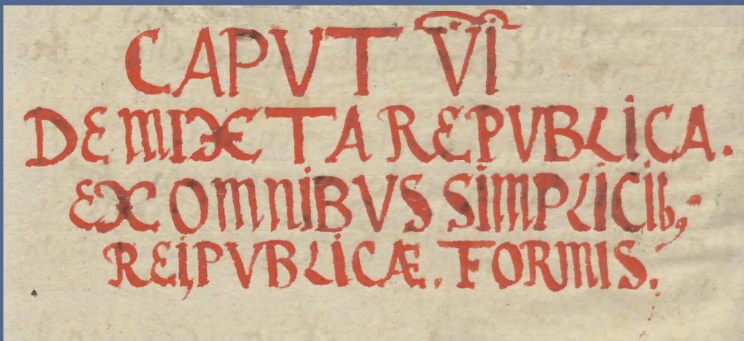 CAPVT VI
DE MIXTA REPVBLICA.
EX OMNIBVS SIMPLICIB;
REIPVBLICÆ. FORMIS.